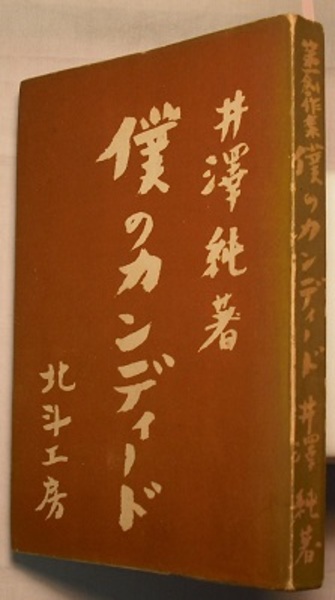 井澤純著
僕のカンディード
北斗工房
第一創作集 僕のカンディード 井澤純著